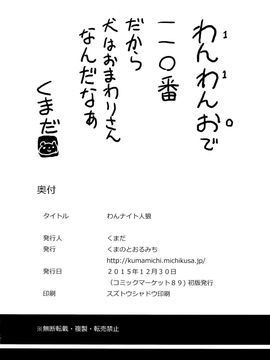 わんわんおで
110
一一〇番
だから
犬はおまわりさん
なんだなぁ
くまだ
奥付
タイトル　わんナイト人狼
発行人　くまだ
発行　くまのとおるみち
http://kumamichi.michikusa.jp/
発行日　2015年12月30日
（コミックマーケット89）初版発行
印刷　スズトウシャドウ印刷
※無断転載・複製・転売禁止